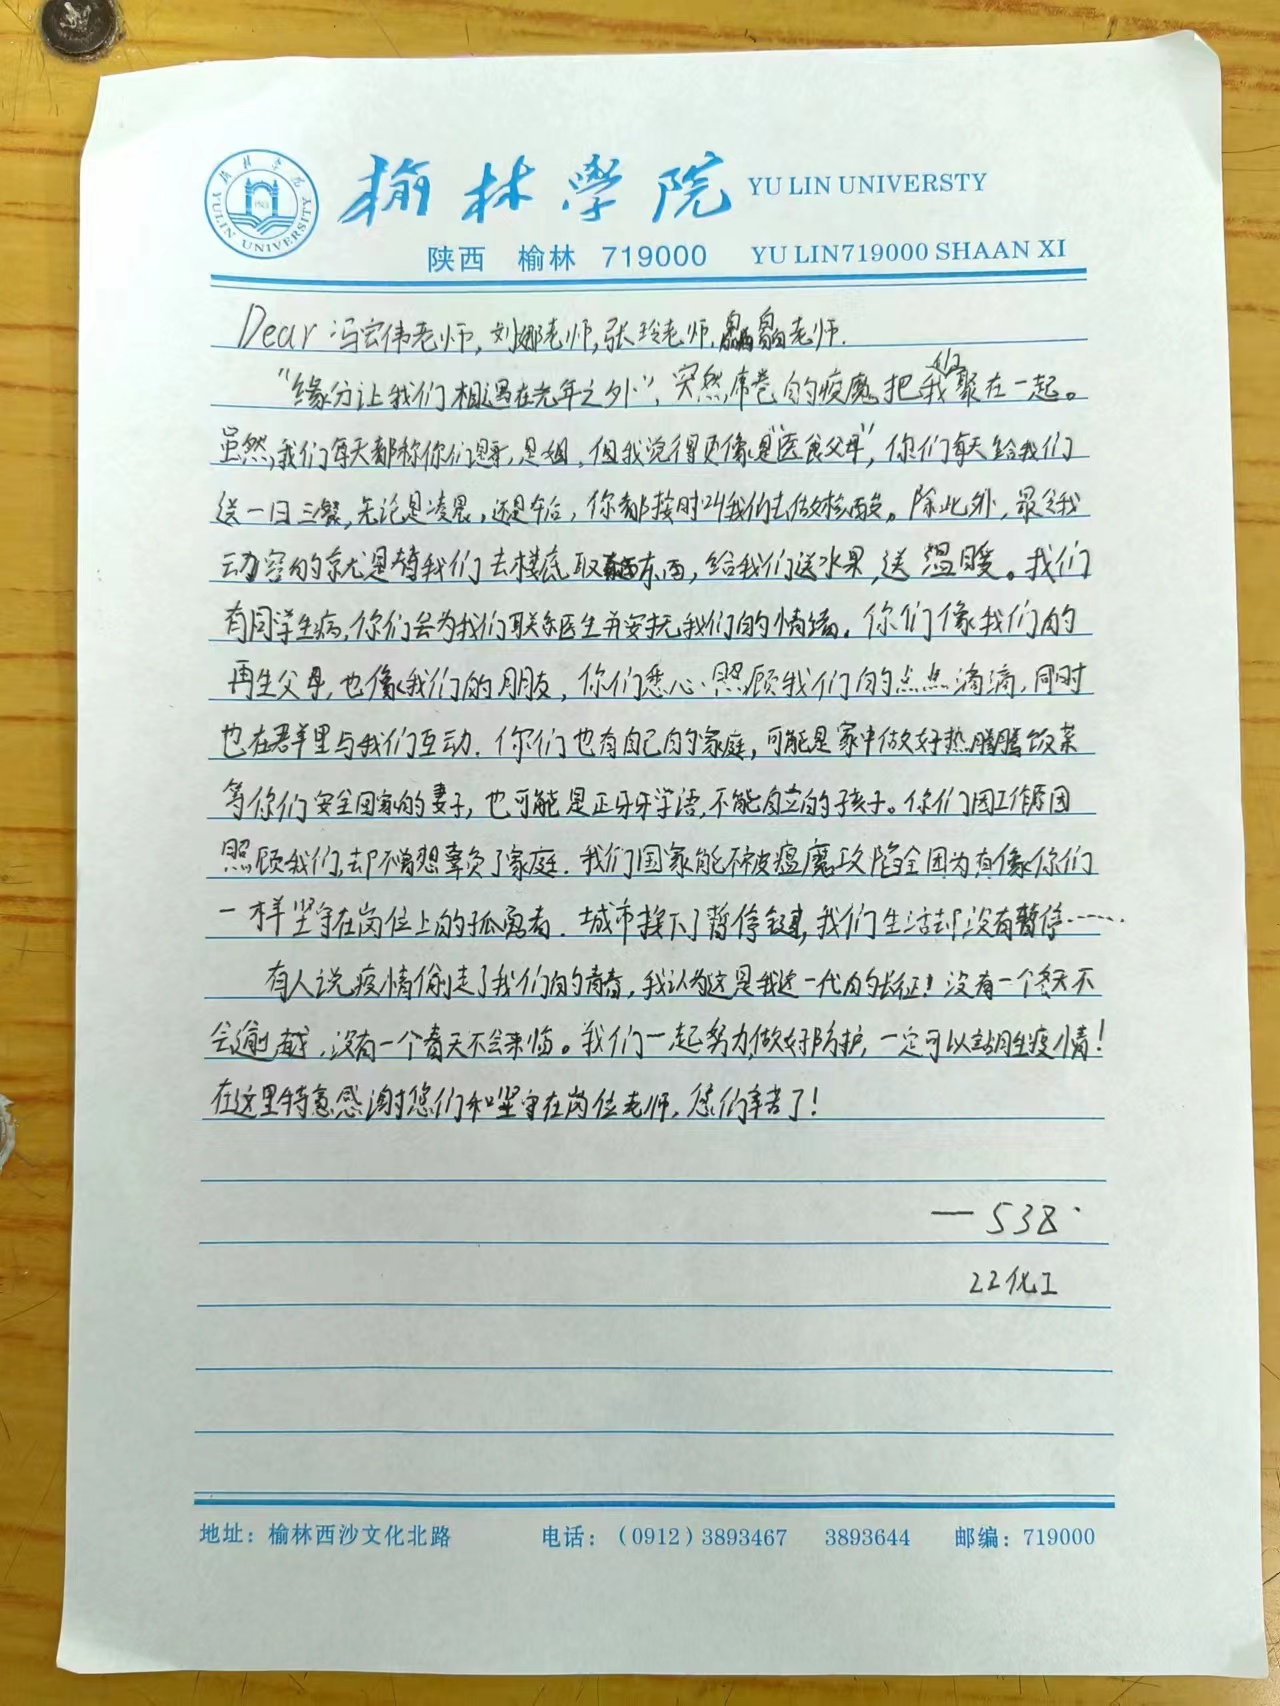 榆林学院
YULIN UNIVERSITY
榆林學院 YU LIN UNIVERSTY
陕西 榆林 719000 YU LIN719000 SHAAN XI
Dear 冯宏伟老师,刘娜老师,张玲老师,老师.
"缘分让我们相遇在光年之外",突然席卷的疫魔把我们聚在一起。
虽然,我们每天都称你们是哥,是姐,但我觉得更像是"医食父母",你们每天给我们
送一日三餐,无论是凌晨,还是午后,你都按时叫我们去做核酸。除此外,最令我
动容的就是替我们去楼底取东西,给我们送水果,送温暖。我们
有同学生病,你们会为我们联系医生并安抚我们的情绪。你们像我们的
再生父母,也像我们的朋友,你们悉心照顾我们的点点滴滴,同时
也在群里与我们互动.你们也有自己的家庭,可能是家中做好热腾腾饭菜
等你们安全回家的妻子,也可能是正牙牙学语,不能自立的孩子。你们因工作原因
照顾我们,却不曾想辜负了家庭.我们国家能不被瘟魔攻陷全因为有像你们
一样坚守在岗位上的孤勇者.城市按下了暂停键,我们生活却没有暂停……
有人说疫情偷走了我们的青春,我认为这是我这一代的长征!没有一个冬天不
会逾越,没有一个春天不会来临。我们一起努力,做好防护,一定可以战胜疫情!
在这里特意感谢您们和坚守在岗位老师,您们辛苦了!
— 538.
22化工
地址:榆林西沙文化北路 电话:(0912)3893467 3893644 邮编:719000